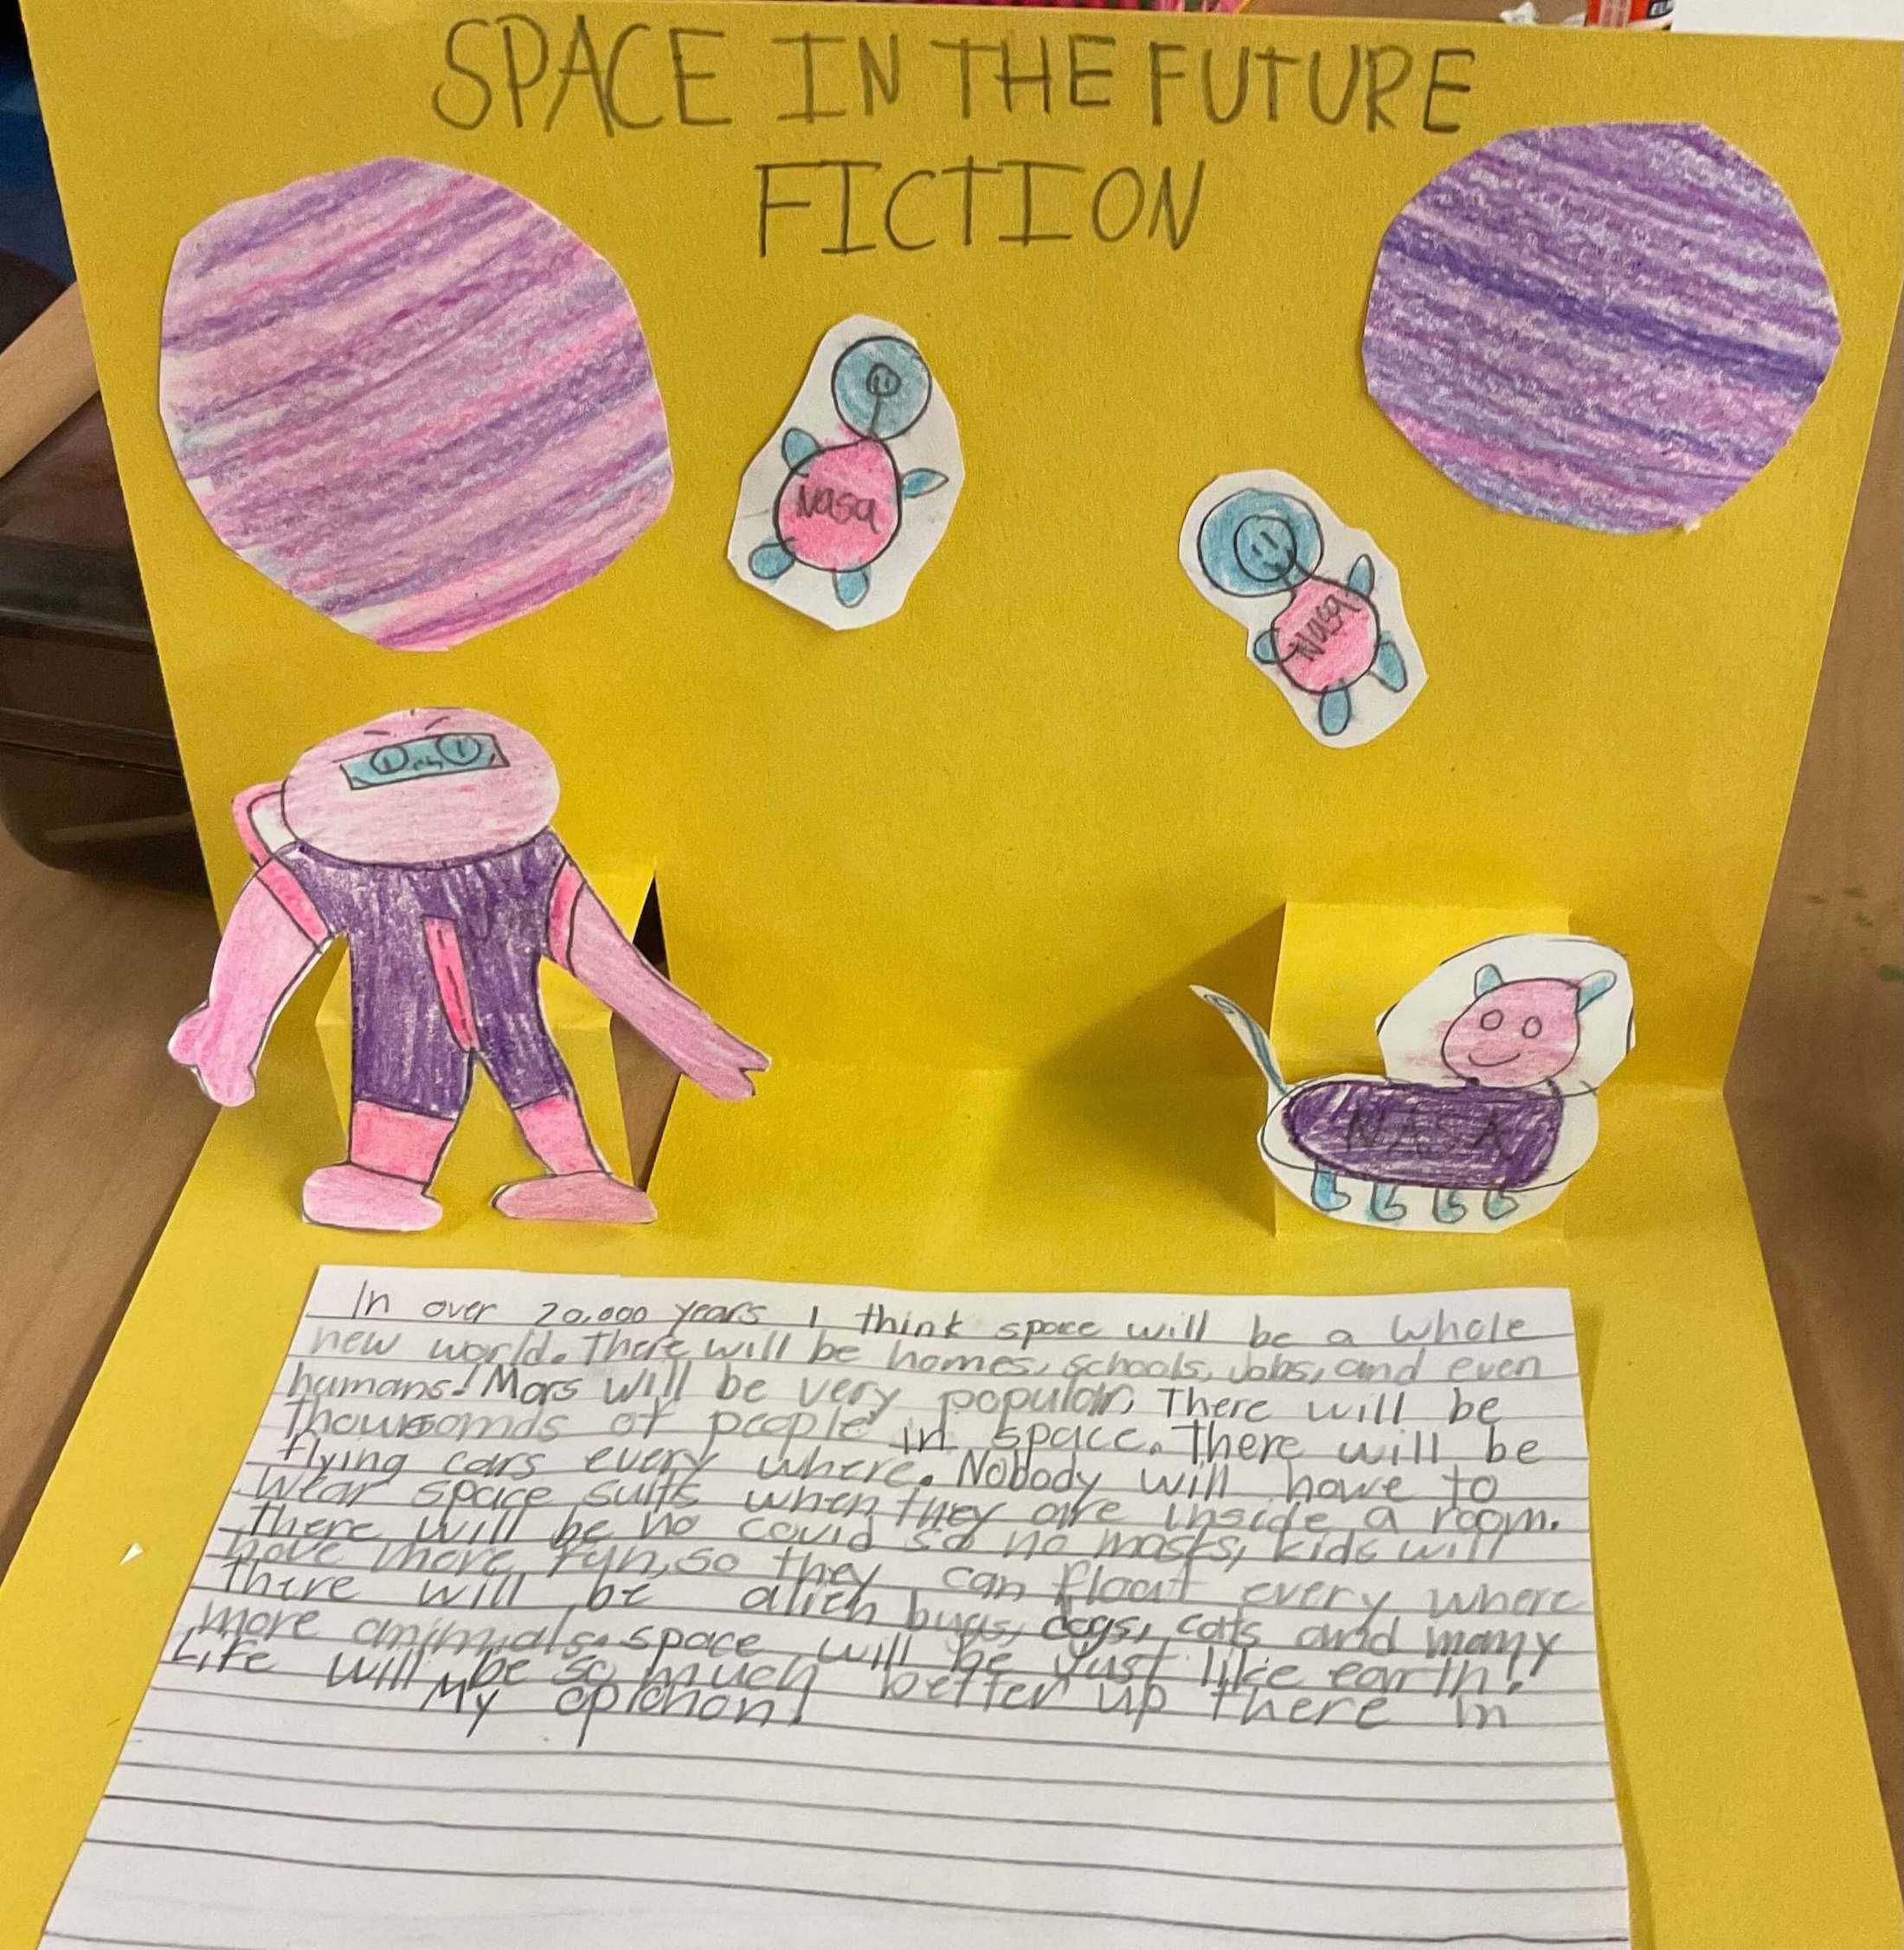 SPACE IN THE FUTURE
FICTION
Nasa
Nasa
NASA
In over 20,000 years I think space will be a whole
new world. There will be homes, schools, jobs, and even
humans! Mars will be very popular, There will be
thousands of people in space. There will be
flying cars every where. Nobody will have to
wear space suits when they are inside a room.
There will be no covid so no masks, kids will
have more fun, so they can float every where
there will be alien bugs, dogs, cats and many
more animals. space will be just like earth!
Life will be so much better up there in
My opichon!